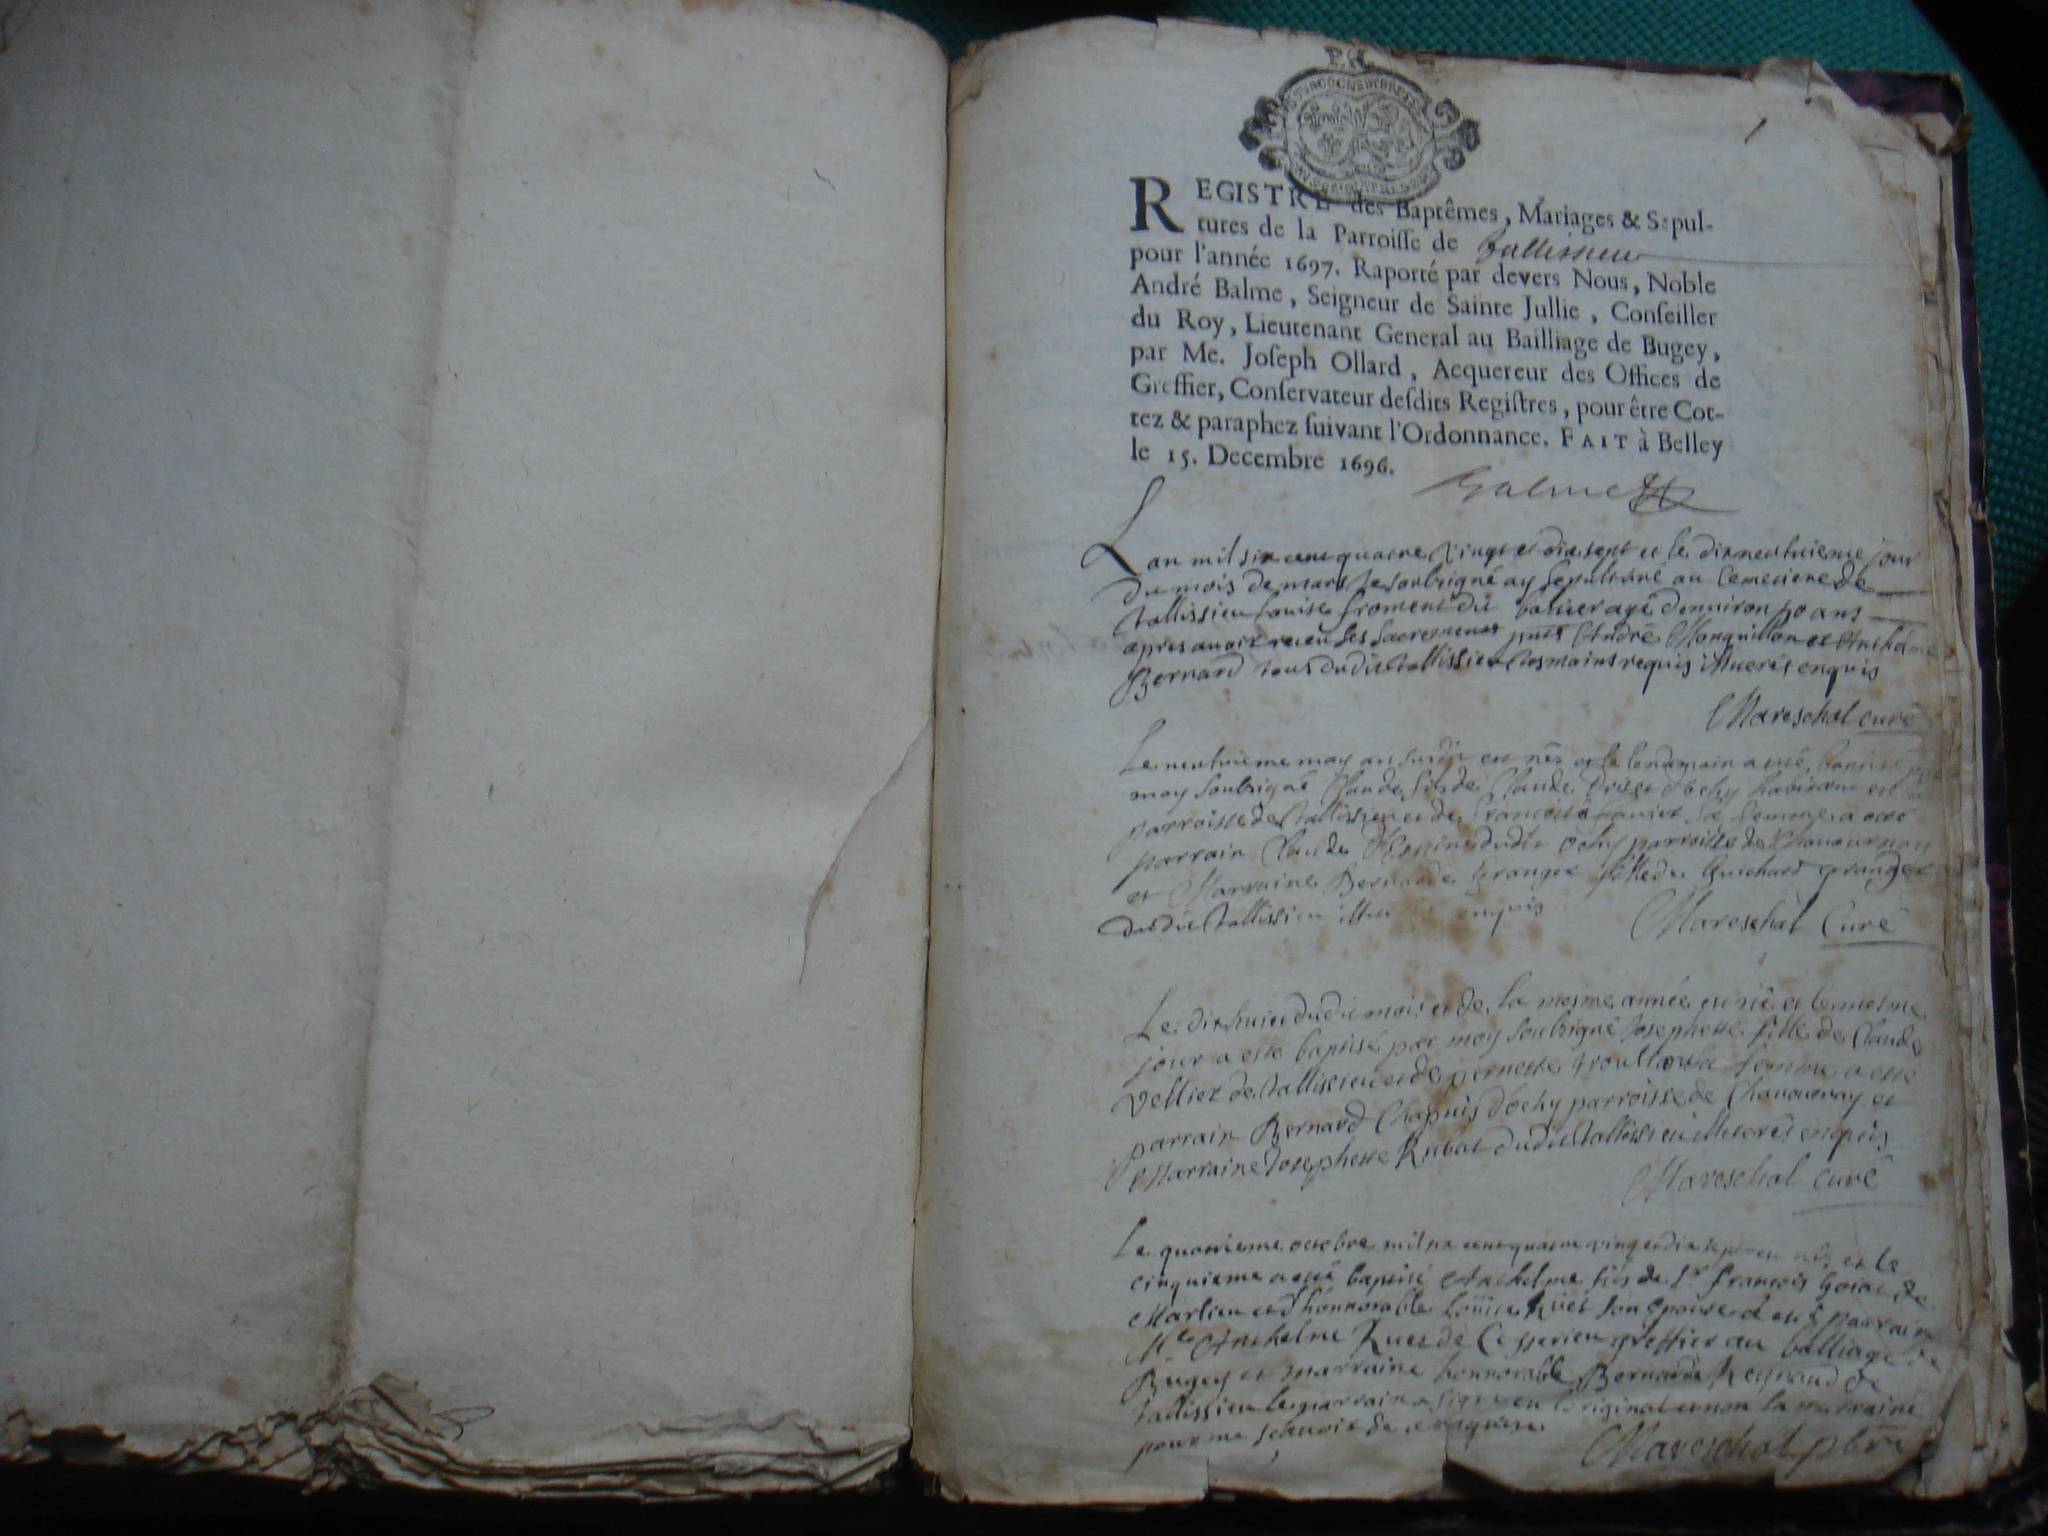 P. R.
REGISTRE des Baptêmes, Mariages & Sepul-
tures de la Parroisse de Tallissieu
pour l'année 1697. Raporté par devers Nous, Noble
André Balme, Seigneur de Sainte Jullie, Conseiller
du Roy, Lieutenant General au Bailliage de Bugey,
par Me. Joseph Ollard, Acquereur des Offices de
Greffier, Conservateur desdits Registres, pour être Cot-
tez & paraphez suivant l'Ordonnance. FAIT à Belley
le 15. Decembre 1696.
Balme
Lan mil six cent quatre vingt et dix sept et le dixneufvieme jour
du mois de mars Je soubsigné ay sepulturé au Cemetiere de
tallissieu Louise froment du agé denviron ans
apres avoir receu les sacrements pnts André Monguillon et Anthelme
Bernard tous dudit tallissieu tesmoins requis illiterés enquis
Mareschal curé
Le neufvieme may an susdit est nés et le lendemain a esté baptisé par
moy soubsigné Claude fils de Claude d'ochy habitant en la
parroisse de tallissieu et de francoise sa femme a esté
parrain Claude dudit ochy parroisse de Chavournay
et Marraine Bernarde Granger fille de Guichard granger
dudit tallissieu enquis
Mareschal Curé
Le dixhuict dudit mois et de la mesme année est née et le mesme
jour a esté baptisé par moy soubsigné Josephette fille de Claude
Velliet de tallissieu et de pernette sa femme a esté
parrain Bernard Chapuis d'ochy parroisse de Chavournay et
Marraine Josephette Rubat dudit tallissieu illiterés enquis
Mareschal curé
Le quatrieme octobre mil six cent quatre vingt et dix sept est nés et le
cinquieme a esté baptisé Anthelme fils de Sr françois de
Marlieu et d'honnorable Louise Ruet son épouse a esté parrain
Me Anthelme Ruet de Cesserieu greffier au balliage de
Bugey et marraine honnorable Bernarde Reynaud de
tallissieu le parrain a signé en l'original et non la marraine
pour ne scavoir de ce enquise.
Mareschal pbre